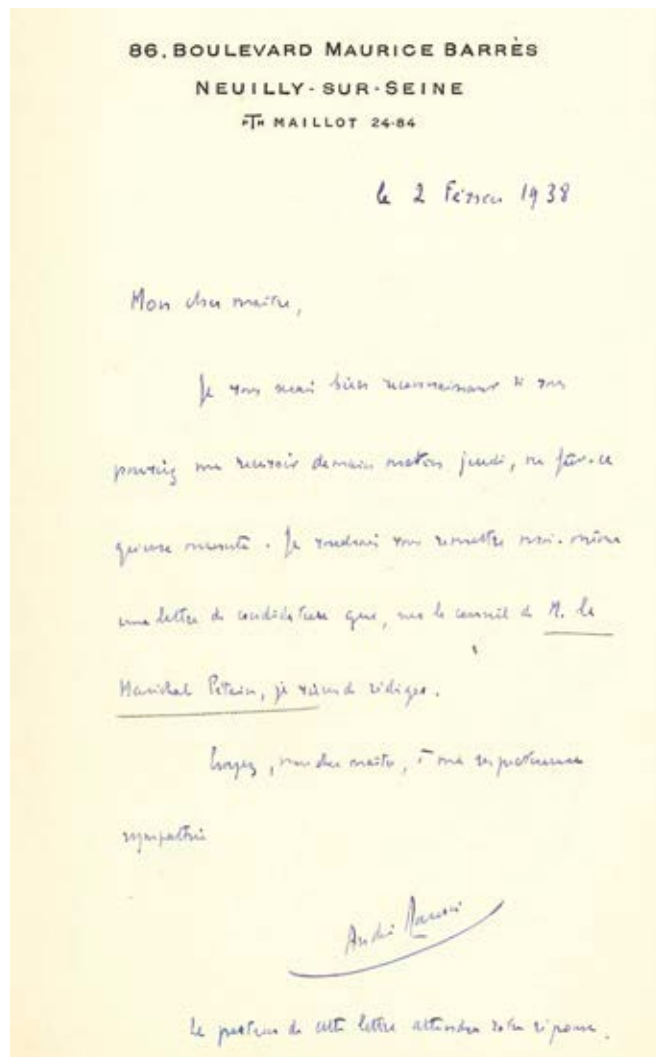 86, BOULEVARD MAURICE BARRÈS
NEUILLY-SUR-SEINE
PTH MAILLOT 24-84
le 2 Février 1938
Mon cher maître,
Je vous serai bien reconnaissant si vous
pouviez me recevoir demain matin jeudi, ne fût-ce
qu'une minute. Je voudrais vous remettre moi-même
une lettre de candidature que, sur le conseil de M. le
Maréchal Pétain, je viens de rédiger.
Croyez, mon cher maître, à ma respectueuse
sympathie
André Maurois
Le porteur de cette lettre attendra votre réponse.